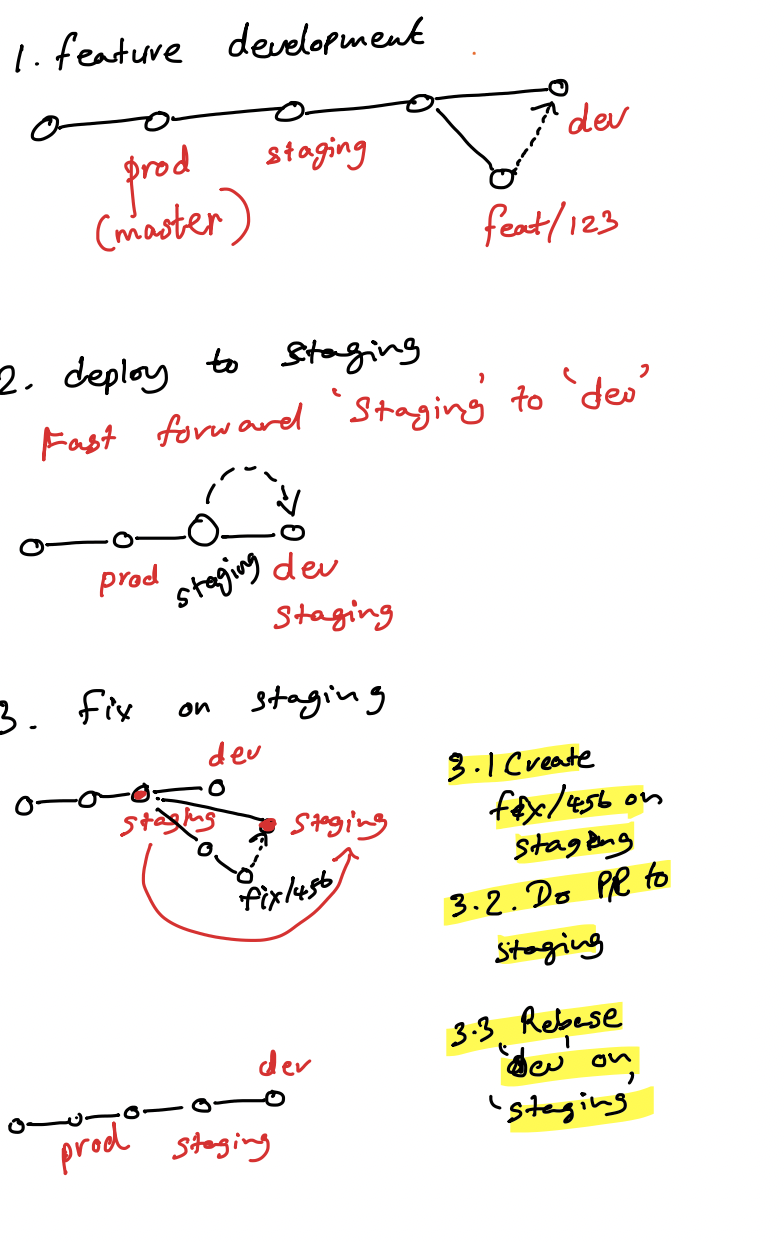 1. feature development
dev
prod
staging
(master)
feat/123
2. deploy to staging
Fast forward 'Staging' to 'dev'
prod
staging
dev
staging
3. fix on staging
dev
staging
staging
fix/456
3.1 Create
fix/456 on
staging
3.2. Do PR to
staging
3.3 Rebase
'dev' on
'staging'
dev
prod
staging